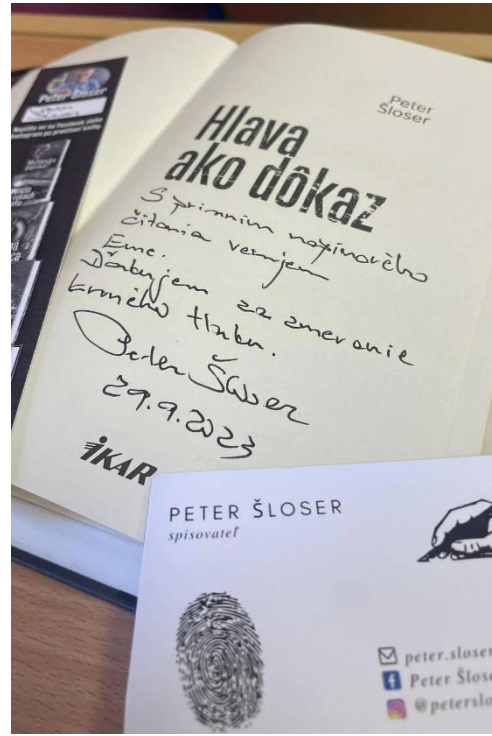 Peter Šloser
Peter
Šloser
Hlava
ako dôkaz
S prianím napínavého
čítania venujem
Eme.
Ďakujem za zmeranie
krvného tlaku.
Peter Šloser
29.9.2023
IKAR
PETER ŠLOSER
spisovateľ
peter.sloser
Peter Šlose
@peterslo